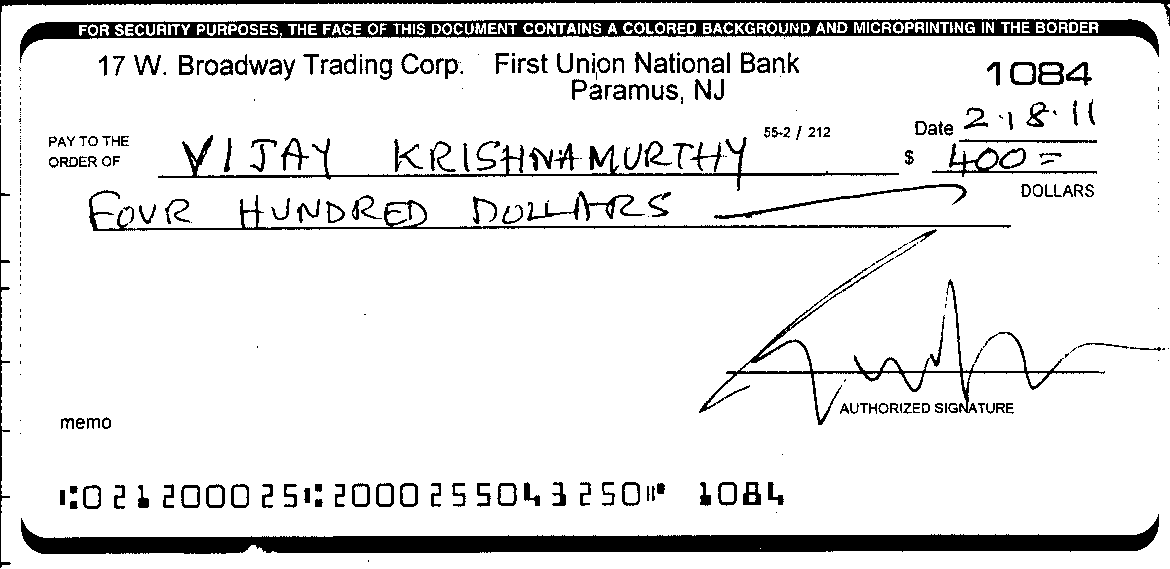 FOR SECURITY PURPOSES, THE FACE OF THIS DOCUMENT CONTAINS A COLORED BACKGROUND AND MICROPRINTING IN THE BORDER
17 W. Broadway Trading Corp. First Union National Bank
Paramus, NJ
1084
55-2 / 212
Date 2.18.11
PAY TO THE
ORDER OF VIJAY KRISHNAMURTHY $ 400=
FOUR HUNDRED DOLLARS DOLLARS
AUTHORIZED SIGNATURE
memo
⑆021200025⑆2000255043250⑈ 1084